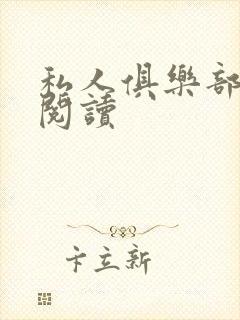 私人俱樂部
閱讀
卞立新